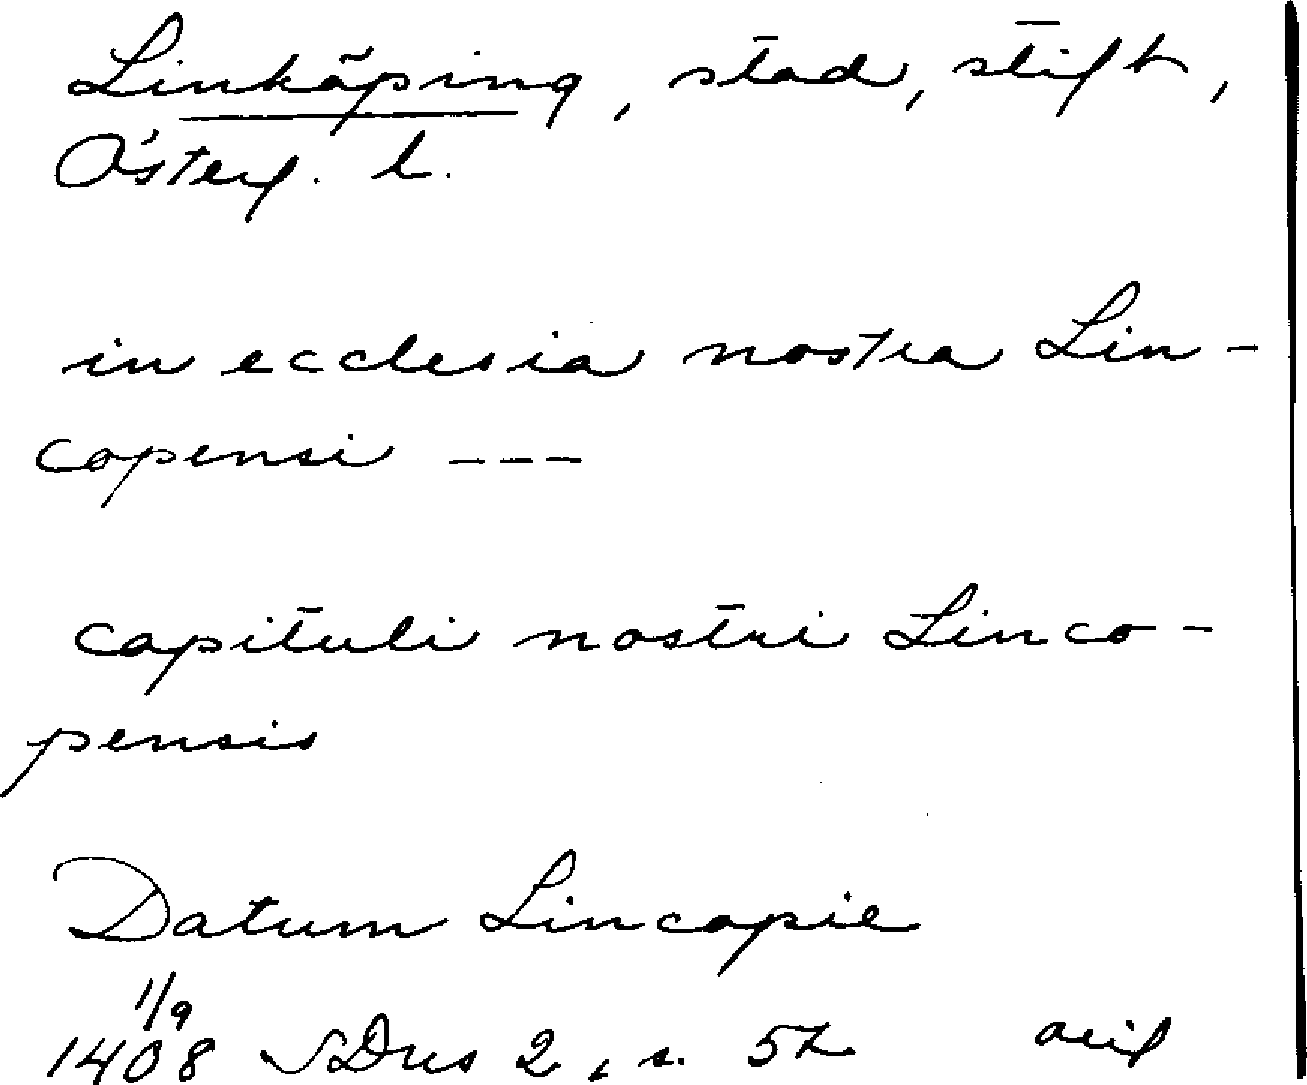 Linköping, stad, stift,
Österg. l.
in ecclesia nostra Lin-
copensi ---
capituli nostri Linco-
pensis
Datum Lincopie
1/9
1408 SDns 2, s. 52 orig